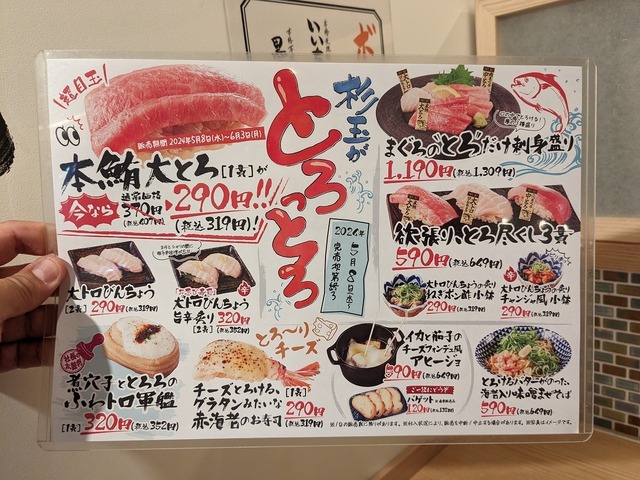 超目玉
販売期間 2024年5月8日(水)〜6月3日(月)
本鮪大とろ[1貫]が
今なら
通常価格
370円
(税込407円)
290円!!!
(税込319円)!
杉玉が
とろっとろ
2024年
5月8日(水)〜
完売次第終了
まぐろの"とろ"だけ刺身盛り
1,190円(税込1,309円)
欲張り、とろ尽くし3貫
590円(税込649円)
大トロびんちょう
[2貫]290円(税込319円)
大トロびんちょう
旨辛炙り
[2貫]320円(税込352円)
大トロびんちょうの炙り
ねぎポン酢小鉢
290円(税込319円)
辛
大トロびんちょうの炙り
チャンジャ風小鉢
290円(税込319円)
煮穴子ととろろの
ふわトロ軍艦
[1貫]320円(税込352円)
とろ〜り
チーズ
チーズとろける、
グラタンみたいな
赤海老のお寿司
[1貫]290円(税込319円)
イカと茄子の
チーズフォンデュ風
アヒージョ
590円(税込649円)
ご一緒にどうぞ
バゲット
120円(税込132円)
とろけるバターがのった、
海苔入り味噌まぜそば
590円(税込649円)